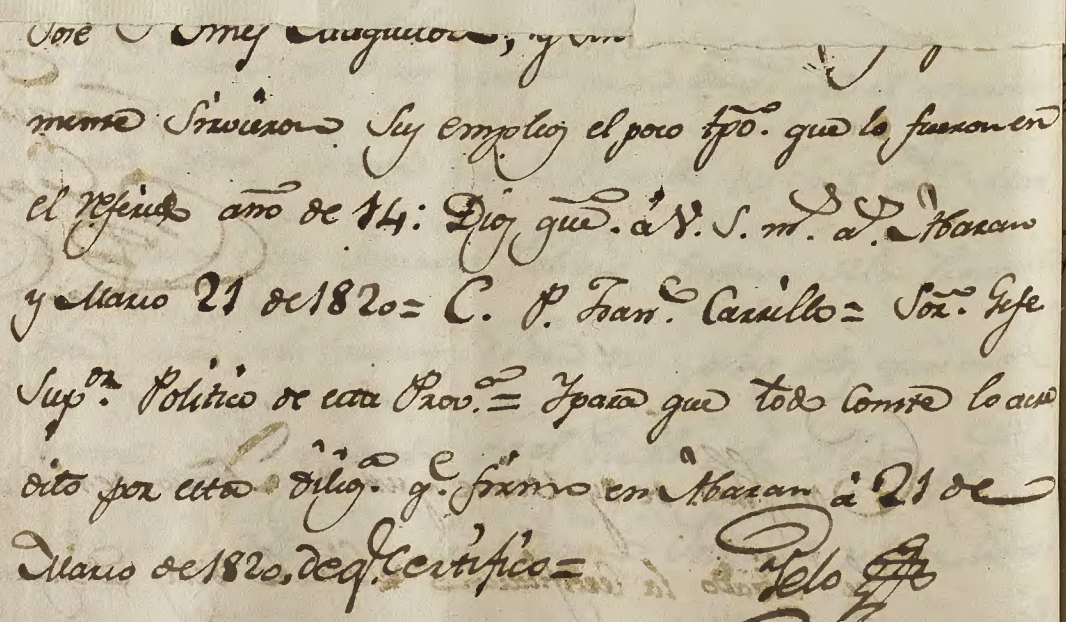 José
mente Sirvieron Sus empleos el poco tpõ. que lo fueron en
el referido año de 14: Dios gue. à V. S. m.s a.s Abaran
y Marzo 21 de 1820 = C. P. Fran.co Carrillo = Sõr. Gefe
Sup.or Politico de esta Prov.a = Ypara que todo Conste lo acre
dito por esta dilig.a q.e firmo en Abaran à 21 de
Marzo de 1820, deq.e Certifico =